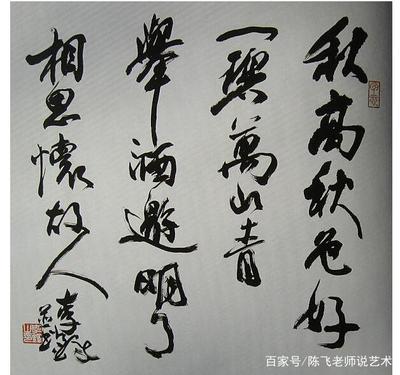 秋高秋色好
一碧萬山青
舉酒邀明月
相思懷故人
李
百家号/陈飞老师说艺术